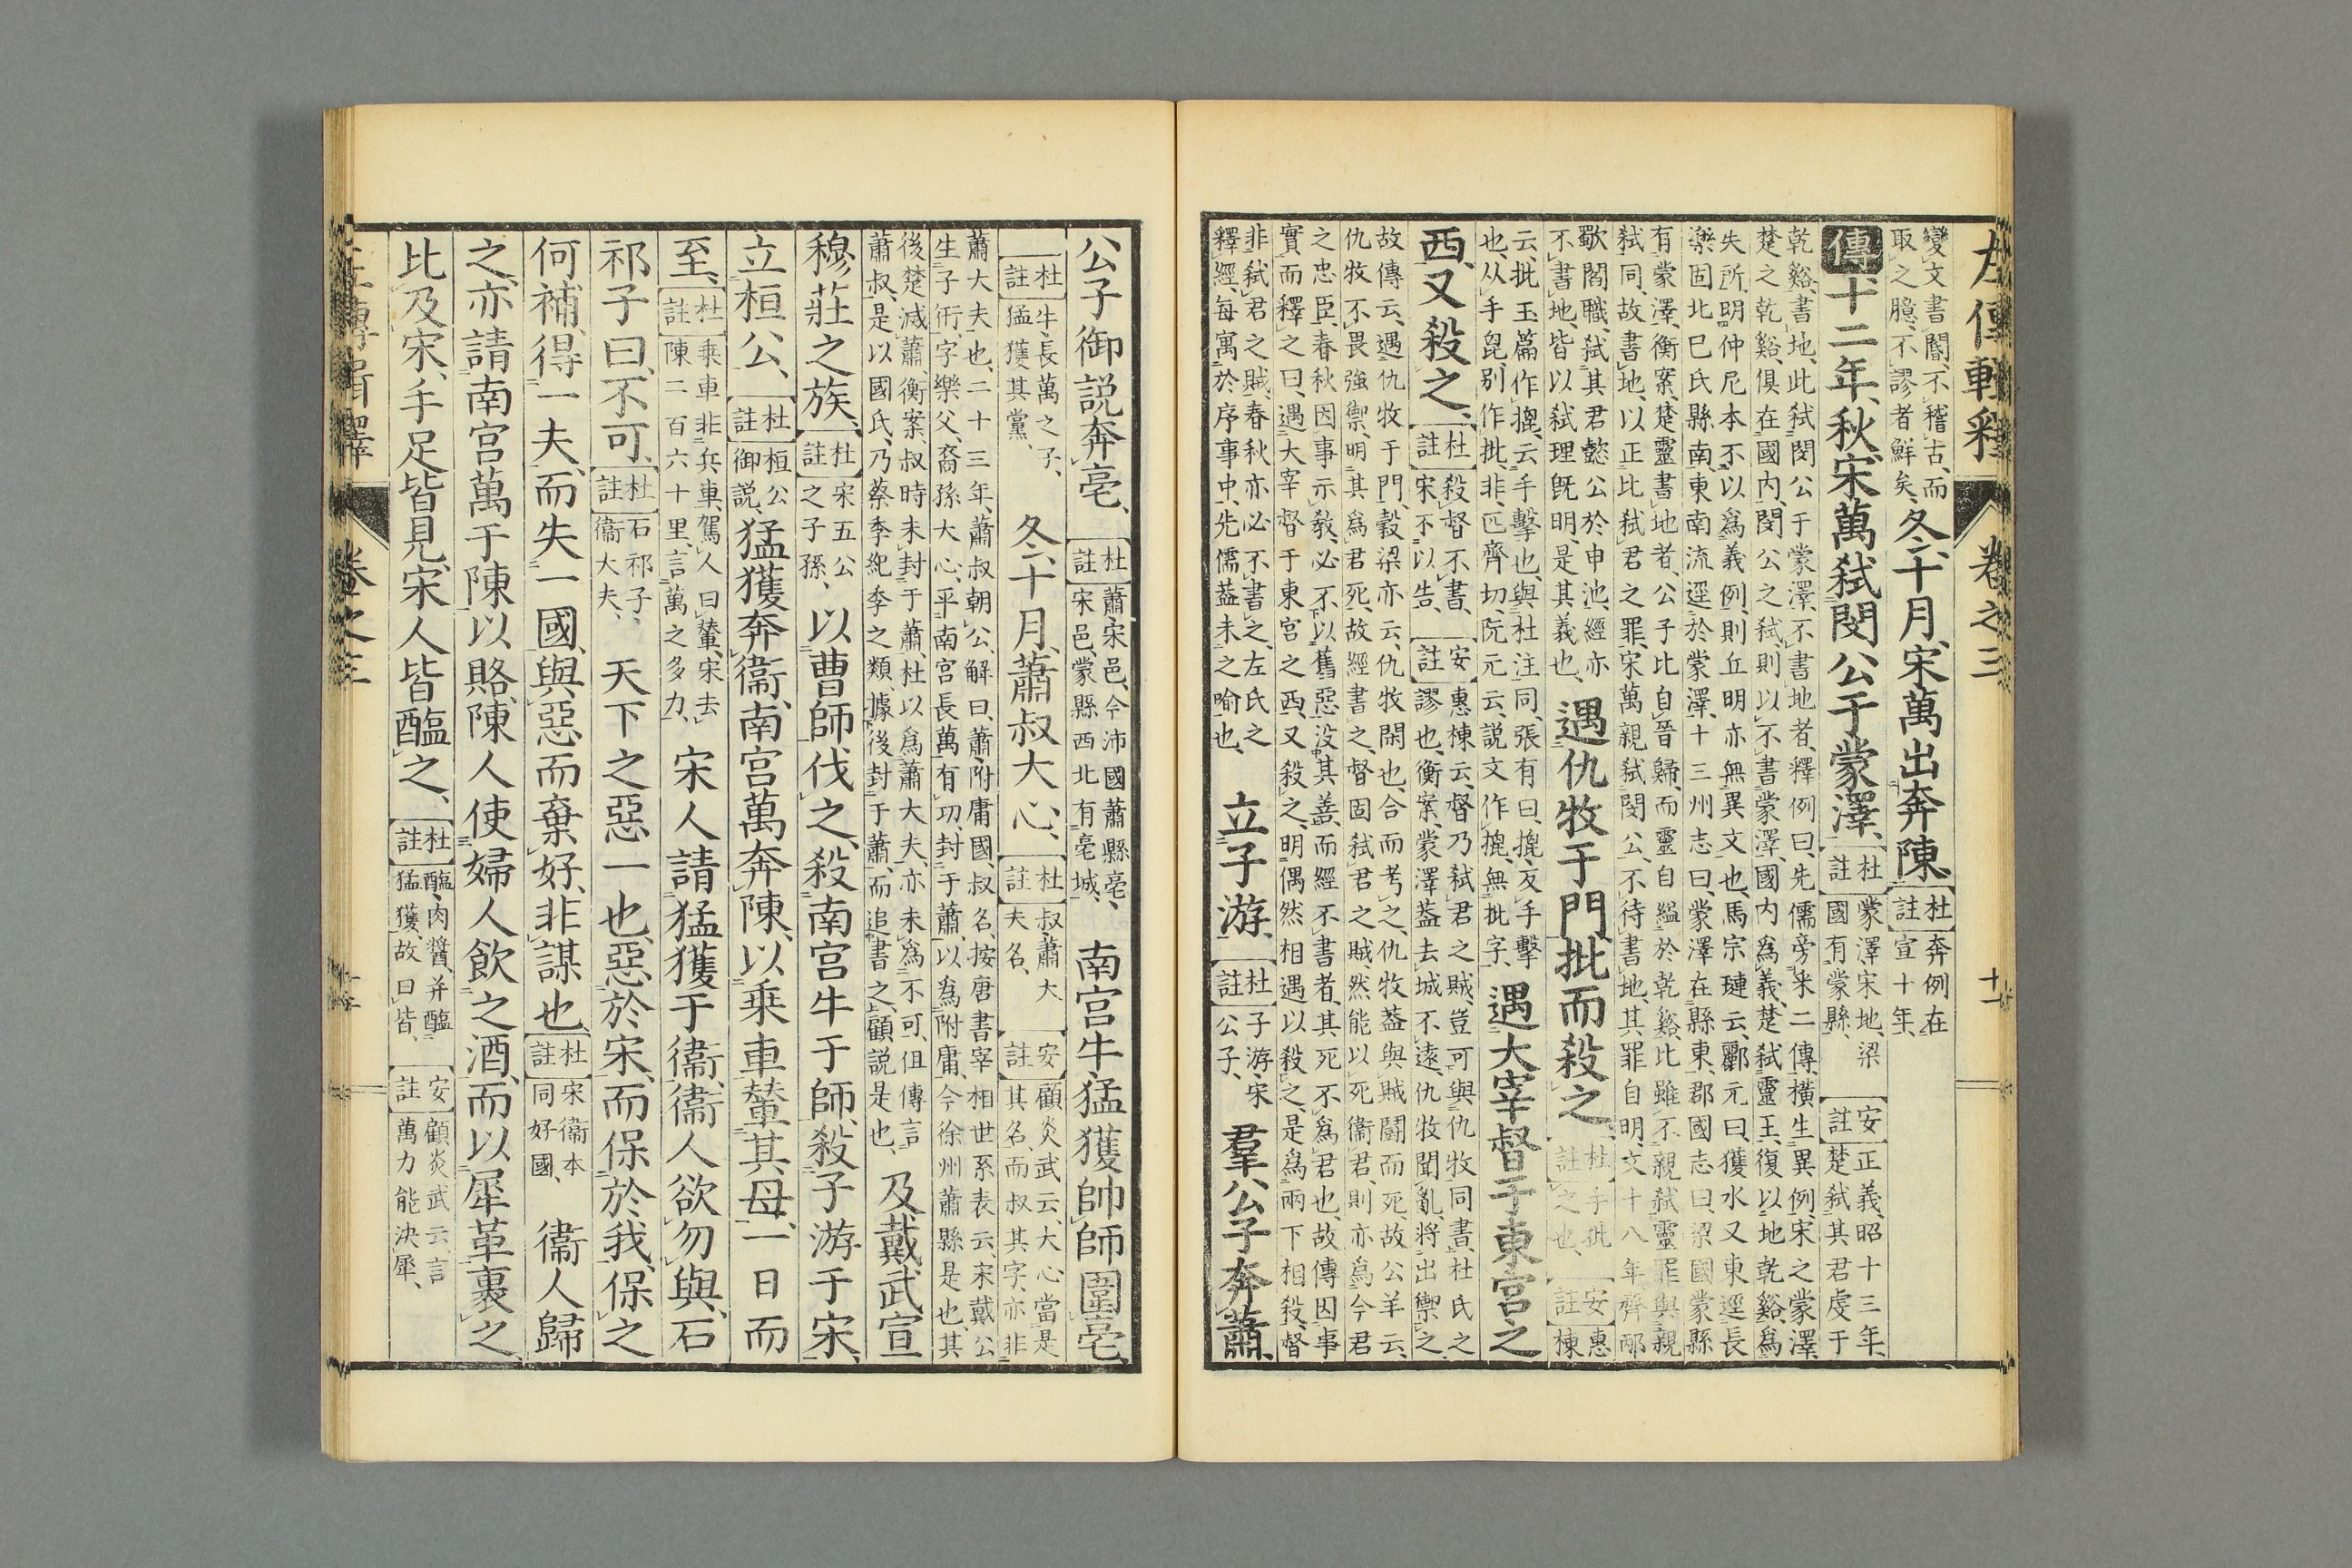 左傳輯釋
卷之三
變文書閽、不稽古、而
取之臆、不謬者鮮矣、
冬、十月、宋萬出奔陳、
杜註
奔例在
宣十年、
傳十二年、秋、宋萬弑閔公于蒙澤、
杜註
蒙澤、宋地、梁
國有蒙縣、
安註
正義、昭十三年、
楚弑其君虔于
乾谿、書地、此弑閔公于蒙澤、不書地者、釋例曰、先儒旁采二傳、橫生異例、宋之蒙澤、
楚之乾谿、俱在國內、閔公之弑、則以不書蒙澤、國內爲義、楚弑靈王、復以地乾谿、爲
失所、明仲尼本不以爲義例、則丘明亦無異文也、馬宗璉云、酈元曰、獲水又東逕長
樂固北巳氏縣南、東南流逕於蒙澤、十三州志曰、蒙澤在縣東、郡國志曰、梁國蒙縣
有蒙澤、衡案、楚靈書地者、公子比自晉歸、而靈自縊於乾谿、比雖不親弑、靈罪與親
弑同、故書地、以正比弑君之罪、宋萬親弑閔公、不待書地、其罪自明、文十八年、齊邴
歜閻職、弑其君懿公於申池、經亦
不書地、皆以弑理既明、是其義也、
遇仇牧于門、批而殺之、
杜註
手批
之也、
安註
惠
棟
云、批、玉篇作㨽、云手擊也、與杜注同、張有曰、㨽、反手擊
也、从手毘、別作批、非、匹齊切、阮元云、説文作㨽、無批字、
遇大宰督于東宮之
西、又殺之、
杜註
殺督不書、
宋不以告、
安註
惠棟云、督乃弑君之賊、豈可與仇牧同書、杜氏之
謬也、衡案、蒙澤葢去城不遠、仇牧聞亂、將出禦之、
故傳云、遇仇牧于門、穀梁亦云、仇牧閑也、合而考之、仇牧葢與賊鬪而死、故公羊云、
仇牧不畏強禦、明其爲君死、故經書之、督固弑君之賊、然能以死衞君、則亦爲今君
之忠臣、春秋因事示教、必不以舊惡没其善、而經不書者、其死不爲君也、故傳因事
實而釋之曰、遇大宰督于東宮之西、又殺之、明偶然相遇以殺之、是爲兩下相殺、督
非弑君之賊、春秋亦必不書之、左氏之
釋經、每寓於序事中、先儒葢未之喻也、
立子游、
杜註
子游、宋
公子、
羣公子奔蕭、
公子御説奔亳、
杜註
蕭、宋邑、今沛國蕭縣、亳、
宋邑、蒙縣西北有亳城、
南宮牛、猛獲帥師圍亳、
杜註
牛、長萬之子、
猛獲、其黨、
冬、十月、蕭叔大心、
杜註
叔、蕭大
夫名、
安註
顧炎武云、大心當是
其名、而叔其字、亦非
蕭大夫也、二十三年、蕭叔朝公、解曰、蕭、附庸國、叔、名、按唐書宰相世系表云、宋戴公
生子衎、字樂父、裔孫大心、平南宮長萬有功、封于蕭、以爲附庸、今徐州蕭縣是也、其
後楚滅蕭、衡案、叔時未封于蕭、杜以爲蕭大夫、亦未爲不可、但傳言
蕭叔、是以國氏、乃蔡季紀季之類、據後封于蕭、而追書之、顧説是也、
及戴武宣
穆莊之族、
杜註
宋五公
之子孫、
以曹師伐之、殺南宮牛于師、殺子游于宋、
立桓公、
杜註
桓公、
御説、
猛獲奔衞、南宮萬奔陳、以乘車輦其母、一日而
至、
杜註
乘車、非兵車、駕人曰輦、宋去
陳二百六十里、言萬之多力、
宋人請猛獲于衞、衞人欲勿與、石
祁子曰、不可、
杜註
石祁子、
衞大夫、
天下之惡一也、惡於宋、而保於我、保之
何補、得一夫、而失一國、與惡而棄好、非謀也、
杜註
宋衞本
同好國、
衞人歸
之、亦請南宮萬于陳以賂、陳人使婦人飲之酒、而以犀革裹之、
比及宋、手足皆見、宋人皆醢之、
杜註
醢、肉醬、并醢
猛獲、故曰皆、
安註
顧炎武云、言
萬力能決犀、
卷之三